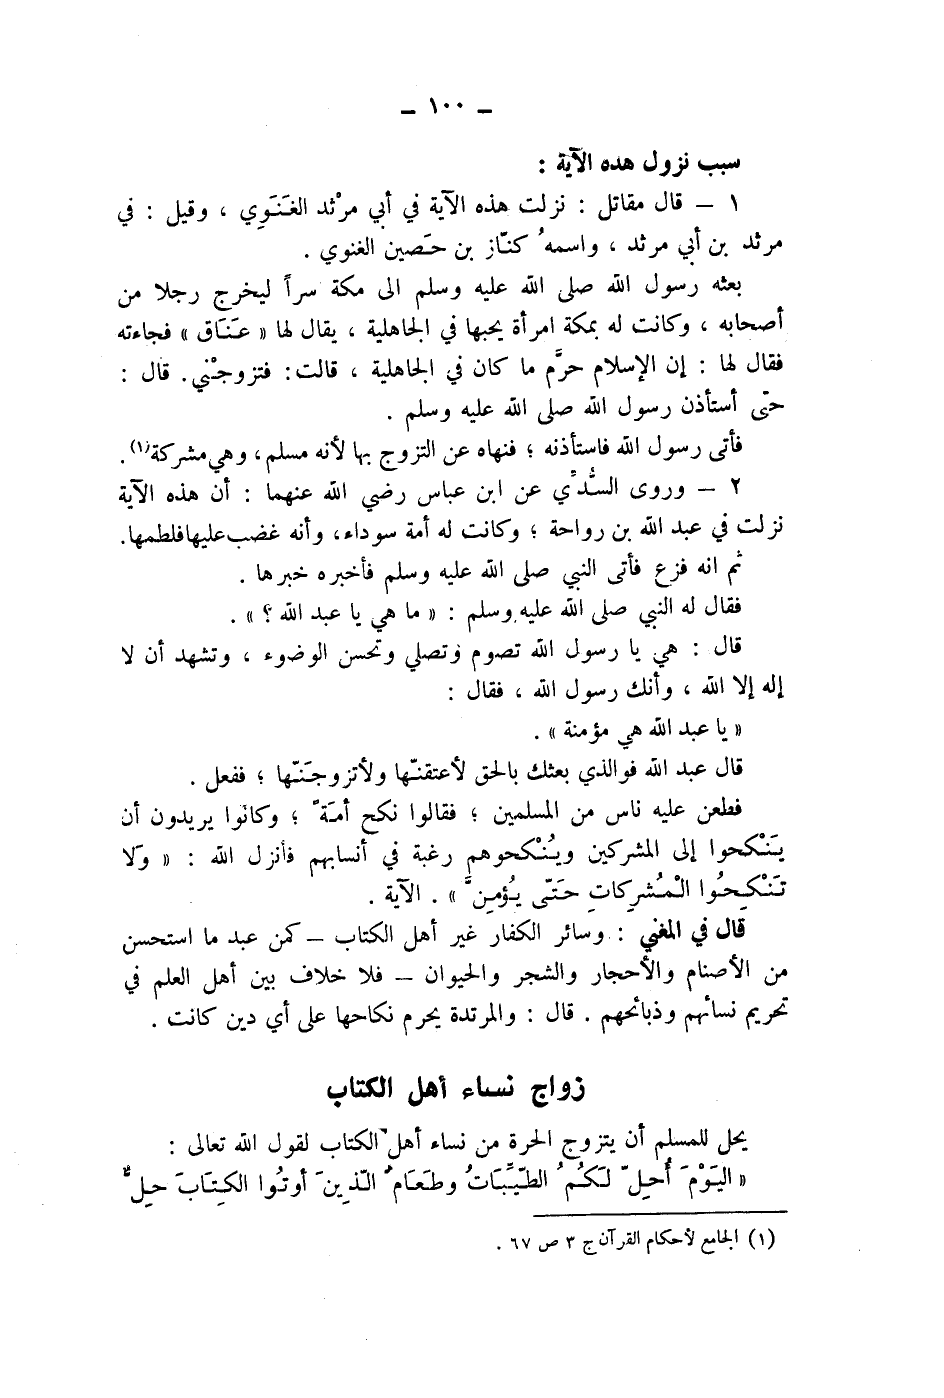 ــ ١٠٠ ــ
سبب نزول هذه الآية :
١ ــ قال مقاتل : نزلت هذه الآية في أبي مرْثد الغَنَوِي ، وقيل : في
مرثد بن أبي مرثد ، واسمهُ كنّاز بن حَصين الغنوي .
بعثه رسول الله صلى الله عليه وسلم الى مكة سراً ليخرج رجلا من
أصحابه ، وكانت له بمكة امرأة يحبها في الجاهلية ، يقال لها « عَنَاق » فجاءته
فقال لها : إن الإسلام حرَّم ما كان في الجاهلية ، قالت: فتزوجْني. قال :
حتّى أستأذن رسول الله صلى الله عليه وسلم .
فأتى رسول الله فاستأذنه ؛ فنهاه عن التزوج بها لأنه مسلم، وهي مشركة(١).
٢ ــ وروى السُّدِّي عن ابن عباس رضي الله عنهما : أن هذه الآية
نزلت في عبد الله بن رواحة ؛ وكانت له أمة سوداء، وأنه غضب عليها فلطمها.
ثم انه فزع فأتى النبي صلى الله عليه وسلم فأخبره خبرها .
فقال له النبي صلى الله عليه وسلم : « ما هي يا عبد الله ؟ » .
قال : هي يا رسول الله تصوم وتصلي وتحسن الوضوء ، وتشهد أن لا
إله إلا الله ، وأنك رسول الله ، فقال :
« يا عبد الله هي مؤمنة » .
قال عبد الله فوالذي بعثك بالحق لأعتقنّها ولأتزوجَنّها ؛ ففعل .
فطعن عليه ناس من المسلمين ؛ فقالوا نكح أمَةً ؛ وكانوا يريدون أن
يَنْكحوا إلى المشركين ويُنْكحوهم رغبة في أنسابهم فأنزل الله : « وَلا
تَنْكِحُوا الْمُشرِكاتِ حَتّى يُؤمِنَّ » . الآية .
قال في المغني : وسائر الكفار غير أهل الكتاب ــ كمن عبد ما استحسن
من الأصنام والأحجار والشجر والحيوان ــ فلا خلاف بين أهل العلم في
تحريم نسائهم وذبائحهم . قال : والمرتدة يحرم نكاحها على أي دين كانت .
زواج نساء أهل الكتاب
يحل للمسلم أن يتزوج الحرة من نساء أهل الكتاب لقول الله تعالى :
« اليَوْمَ أُحِلّ لَكُمُ الطّيِّبَاتُ وطَعَامُ الّذِينَ أوتُوا الكِتَابَ حِلٌّ
(١) الجامع لأحكام القرآن ج ٣ ص ٦٧ .